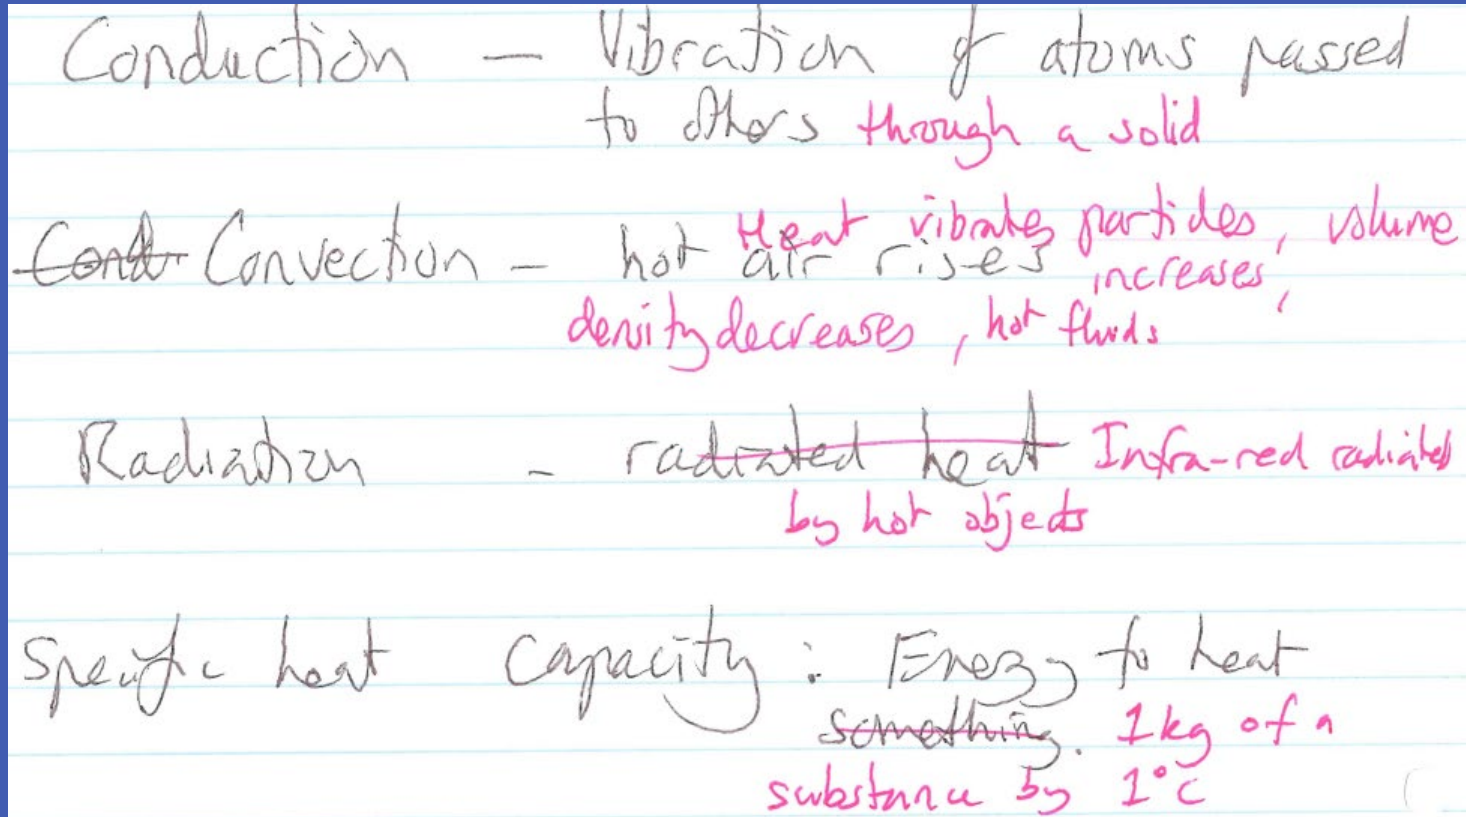 Conduction – Vibration of atoms passed
to others through a solid
Heat vibrates particles, volume
Cond Convection – hot air rises increases,
density decreases, hot fluids
Radiation - radiated heat Infra-red radiated
by hot objects
Specific heat capacity: Energy to heat
something. 1kg of a
substance by 1°C